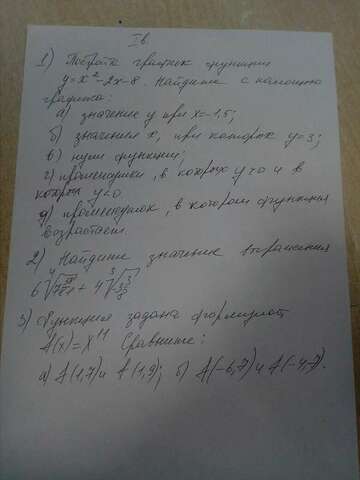 I в.
1) Постройте график функции
y = x² - 2x - 8. Найдите с помощью
графика:
а) значение y при x = -1,5;
б) значения x, при которых y = 3;
в) нули функции;
г) промежутки, в которых y > 0 и в
которых y < 0
д) промежуток, в котором функция
возрастает.
2) Найдите значение выражения
3) Функция задана формулой
f(x) = x¹¹ Сравните:
а) f(1,7) и f(1,9); б) f(-6,7) и f(-4,7).